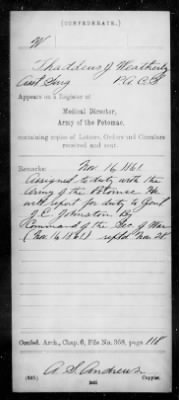 (CONFEDERATE.)
W
Thaddeus J Weatherly
Asst Surg P.A.C.S
Appears on a Register of
Medical Director,
Army of the Potomac,
containing copies of Letters, Orders and Circulars
received and sent.
Remarks: Nov 16 1861.
Assigned to duty with the
Army of the Potomac He
will report for duty to Genl
J.E. Johnston By
Command of the Sec of War
(Nov 16 1861) reptd Nov 28
Confed. Arch., Chap. 6, File No. 369, page 118
A. S. Andrews
Copyist.